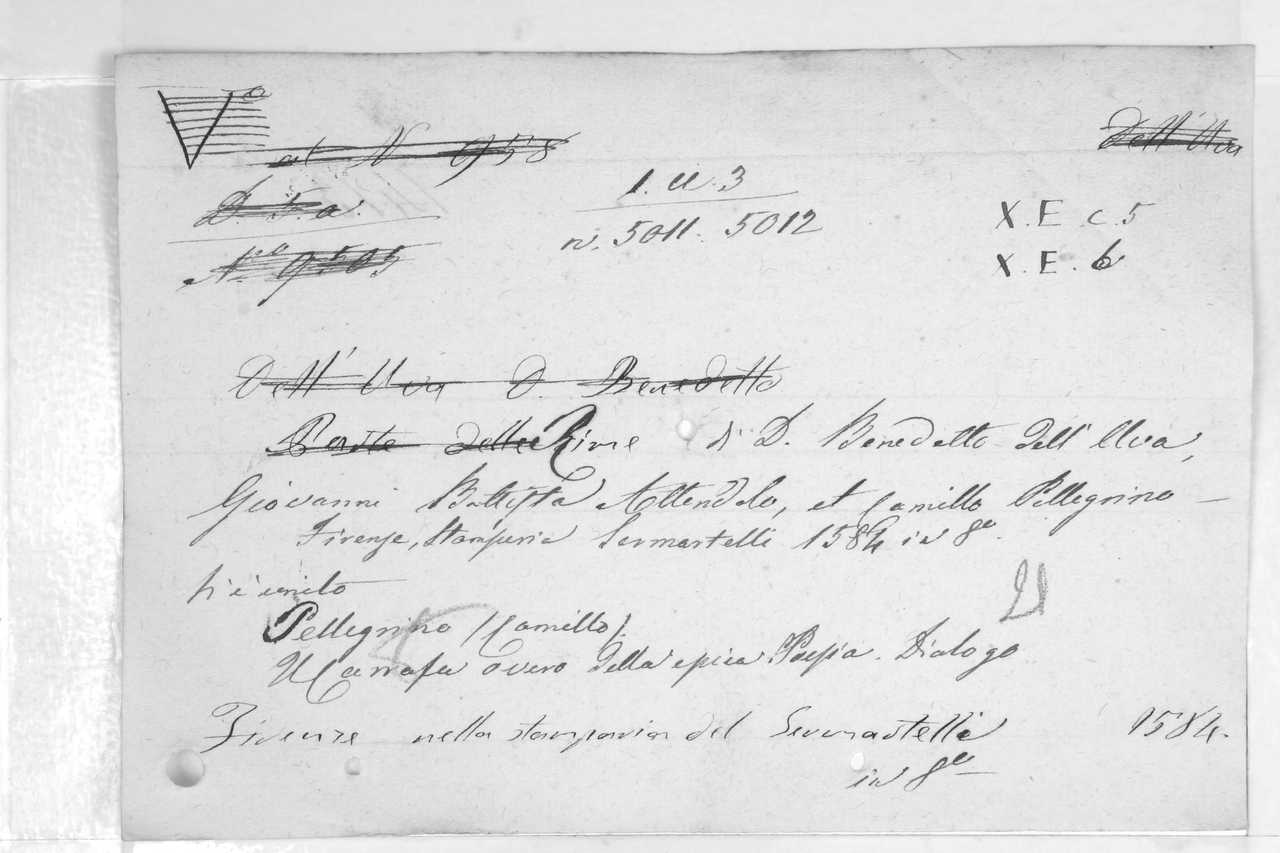 Vo
al N 958 Dell' Uva
D. 5. a. 1. U. 3 X. E. c. 5
No 9505 n. 5011. 5012 X. E. 6
Dell' Uva D. Benedetto
Parte delle Rime di D. Benedetto dell' Uva,
Giovanni Battista Attendolo, et Camillo Pellegrino —
Firenze, Stamperia Sermartelli 1584 in 8o.
Vi è unito
Pellegrino (Camillo).
Il Carrafa overo della epica Poesia. Dialogo
Firenze nella stamparia del Sermartelli 1584.
in 8o